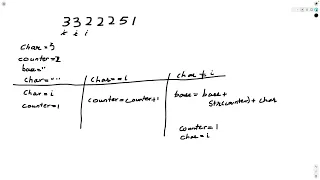 3322251
i i i
char = 3
counter = 2
base = ""
char = "" char == i char ≠ i
char = i
counter = 1
counter = counter + 1
base = base +
str(counter) + char
counter = 1
char = i